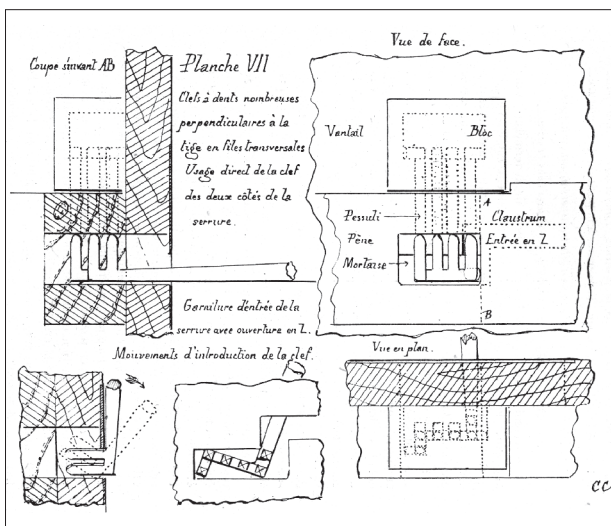 Coupe suivant AB
Planche VII
Clefs à dents nombreuses
perpendiculaires à la
tige en files transversales
Usage direct de la clef
des deux côtés de la
serrure.
Garniture d'entrée de la
serrure avec ouverture en Z.
Mouvements d'introduction de la clef.
Vue de face.
Vantail
Bloc
A
Pessuli
Claustrum
Pène
Entrée en Z
Mortaise
B
Vue en plan.
CC